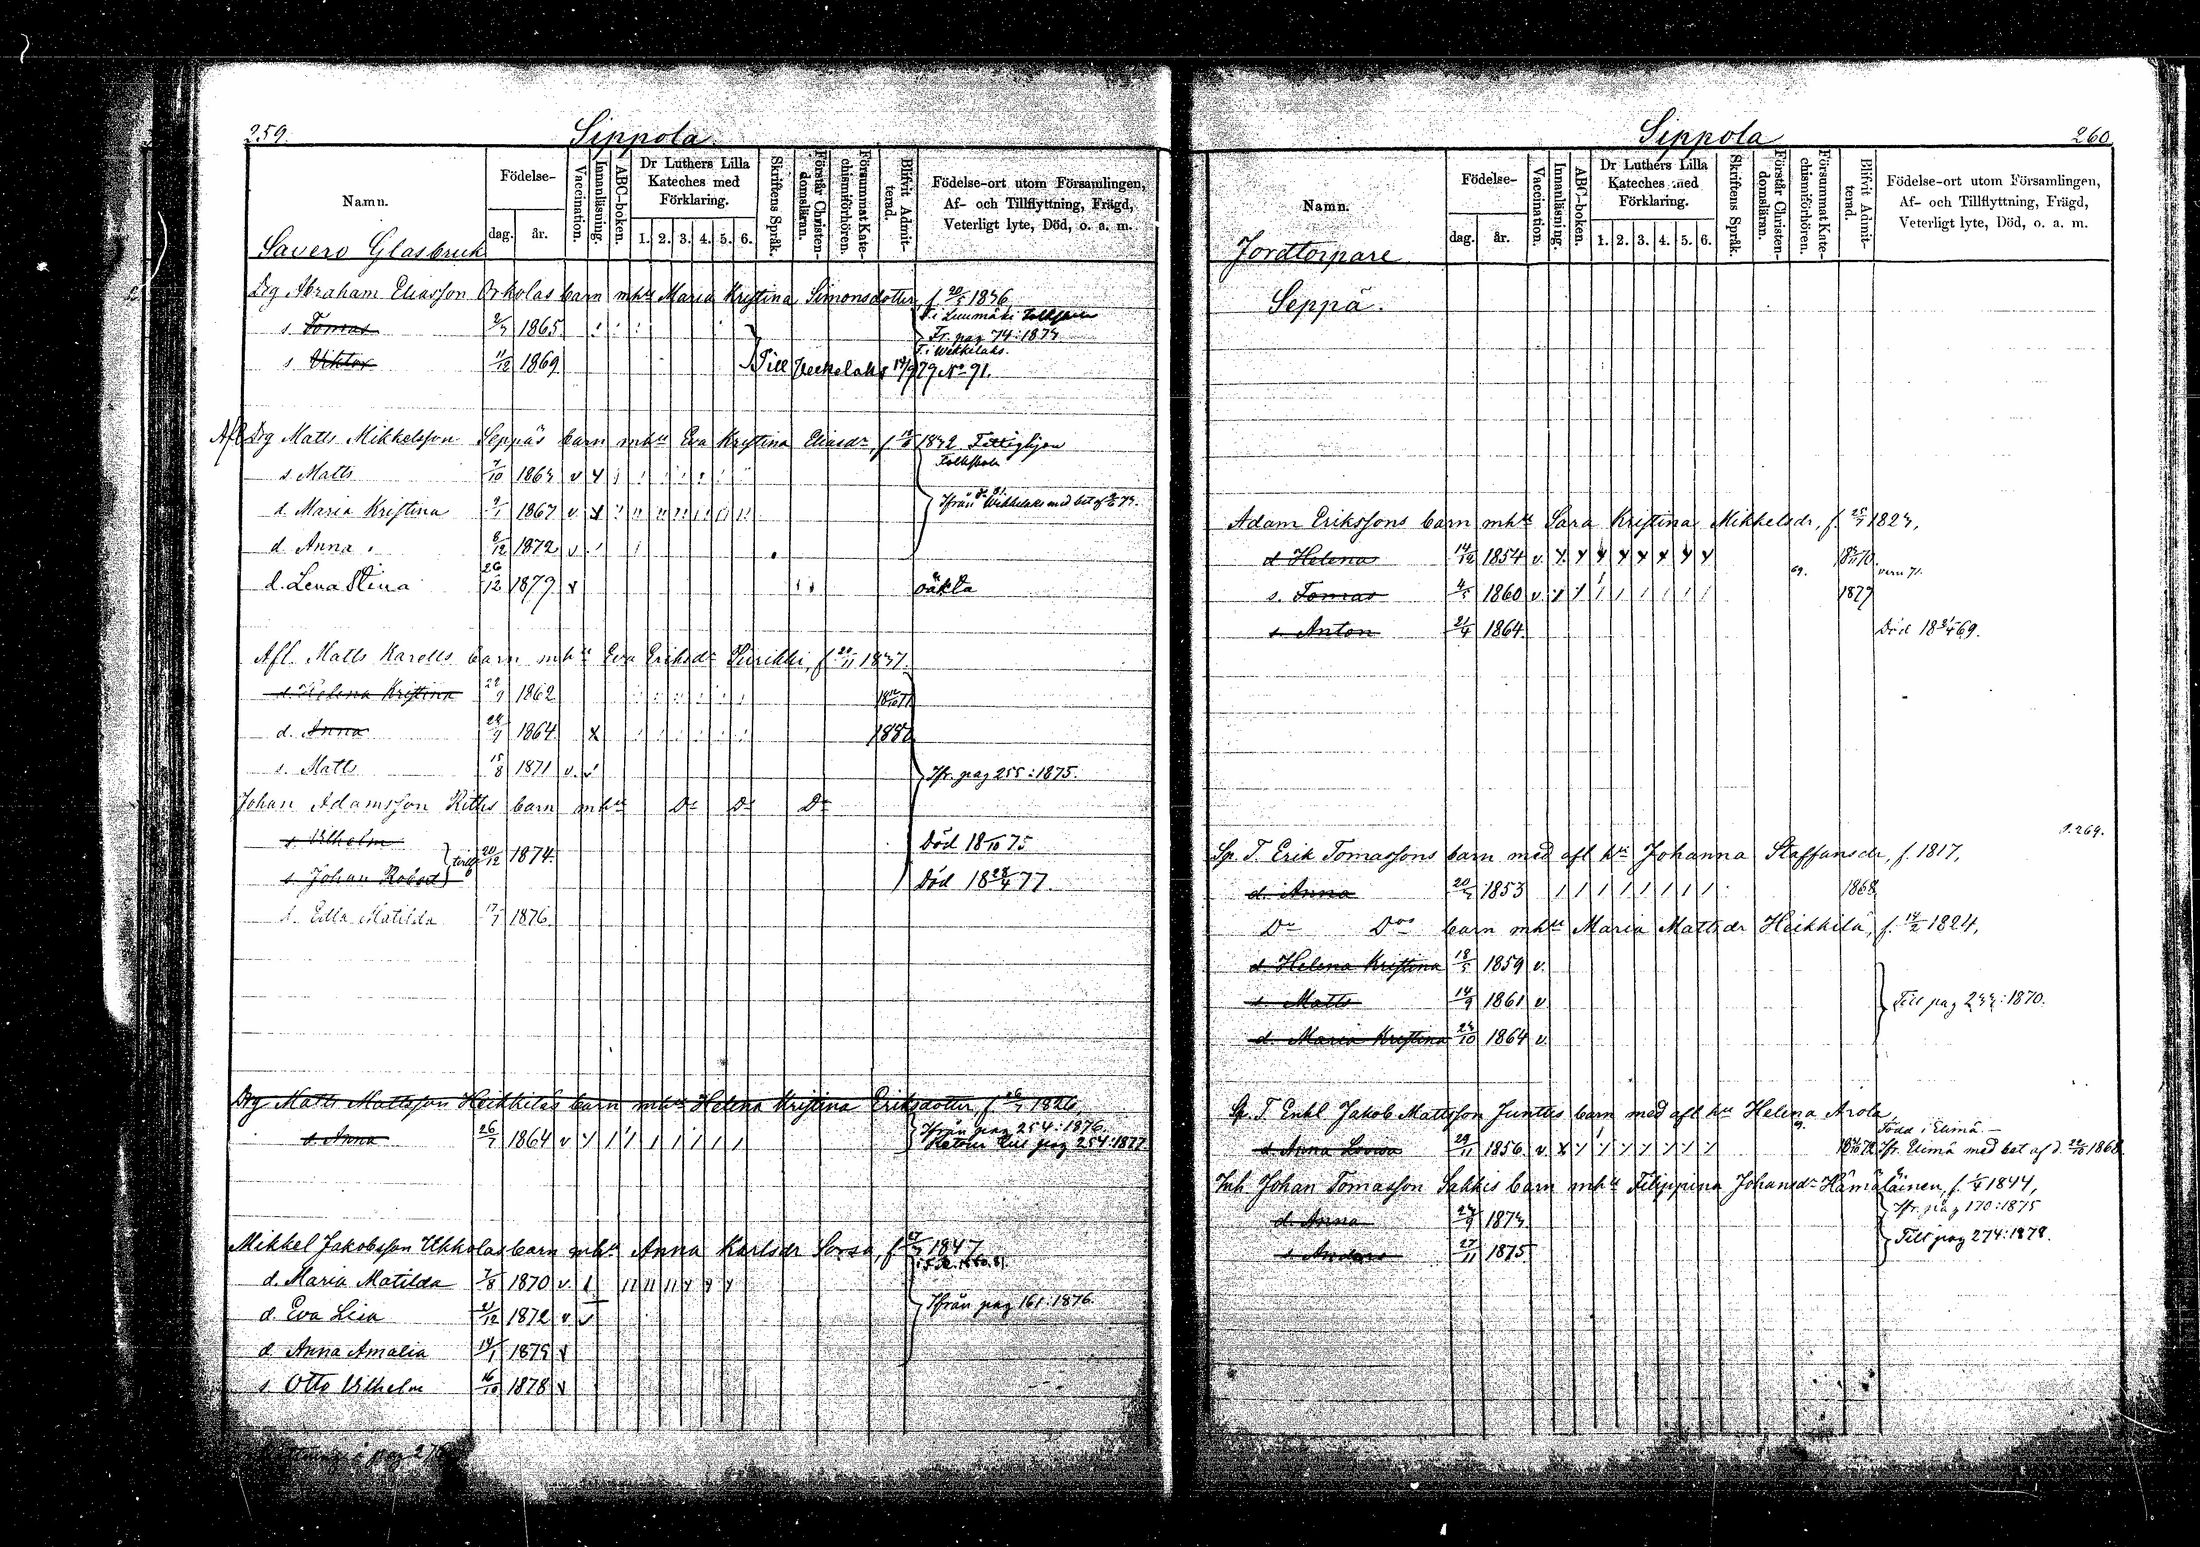 259.
Sippola.
Namn.
Födelse-
dag.
år.
Vaccination.
Innanläsning.
ABC-boken.
Dr Luthers Lilla Kateches med Förklaring.
1. 2. 3. 4. 5. 6.
Skriftens Språk.
Förstår Christendomsläran.
Försummat Katechismiförhören.
Blifvit Admitterad.
Födelse-ort utom Församlingen, Af- och Tillflyttning, Frägd, Veterligt lyte, Död, o. a. m.
Savero Glasbruk
Drg Abraham Eliasson Orkolas barn mhu Maria Kristina Simonsdotter, f. 20/5 1836
s. Tomas 2/7 1865 F. i Luumäki
Fr. pag 74:1874
s. Viktor 11/12 1869 F. i Wekkelaks.
Till Veckelaks 17/9 79 No 91.
Afl Drg Matts Mikkelsson Seppäs barn mhu Eva Kristina Eliasdr, f. 1832
s. Matts 7/10 1863 v
d. Maria Kristina 9/1 1867 v Ifrån Wekkelaks med bet af
d. Anna 8/12 1872 v
d. Lena Stina 26/12 1879 oäkta
Afl. Matts Karells barn mhu Eva Eriksdr Suikki, f. 20/11 1837.
d. Helena Kristina 22/9 1862
d. Anna 1864 x
s. Matts 15/8 1871 v. Ifr. pag 255:1875.
Johan Adamsson Rittes barn mhu Do Do Do
s. Vilhelm 20/12 1874 Död 18/10 75
s. Johan Robert Död 18 28/4 77.
d. Edla Matilda 17/7 1876
Drg Matts Mattsson Heikkiläs barn mhu Helena Kristina Eriksdotter, f. 1826,
d. Anna 26/1 1864 v Ifrån pag 254:1876.
Retour till pag 254:1877
Mikkel Jakobsson Ukkolas barn mhu Anna Karlsdr Sorsa, f. 1847
d. Maria Matilda 7/8 1870 v.
d. Eva Lisa 21/12 1872 v Ifrån pag 161:1876.
d. Anna Amalia 14/1 1875
s. Otto Vilhelm 16/10 1878
Sippola
260.
Namn.
Födelse-
dag.
år.
Vaccination.
Innanläsning.
ABC-boken.
Dr Luthers Lilla Kateches med Förklaring.
1. 2. 3. 4. 5. 6.
Skriftens Språk.
Förstår Christendomsläran.
Försummat Katechismiförhören.
Blifvit Admitterad.
Födelse-ort utom Församlingen, Af- och Tillflyttning, Frägd, Veterligt lyte, Död, o. a. m.
Jordtorpare
Seppä.
Adam Erikssons barn mhu Sara Kristina Mikkelsdr, f. 25/7 1823,
d. Helena 14/12 1854 v.
s. Tomas 4/5 1860 v. 69. 1877
s. Anton 21/4 1864 Död 18 21/4 69.
S. 269.
Sp. T. Erik Tomassons barn med afl hu Johanna Staffansdr, f. 1817,
d. Anna 1853 1868
Do Dos barn mhu Maria Mattsdr Heikkilä, f. 14/2 1824,
d. Helena Kristina 18/5 1859 v.
s. Matts 14/9 1861 v Till pag 233:1870.
d. Maria Kristina 23/10 1864 v.
Sp. T. Enkl Jakob Mattsson Junttis barn med afl hu Helena Arola,
Född i Elimä.-
d. Anna Lovisa 29/11 1856 v. x Ifr. Elimä med bet af d. 22/10 1868.
Inh Johan Tomasson Sakkis barn mhu Filippina Johansdr Hämäläinen, f. 1/4 1844,
d. Anna 23/9 1873 Ifr. pag 170:1875
s. Anders 27/11 1875 Till pag 274:1878.